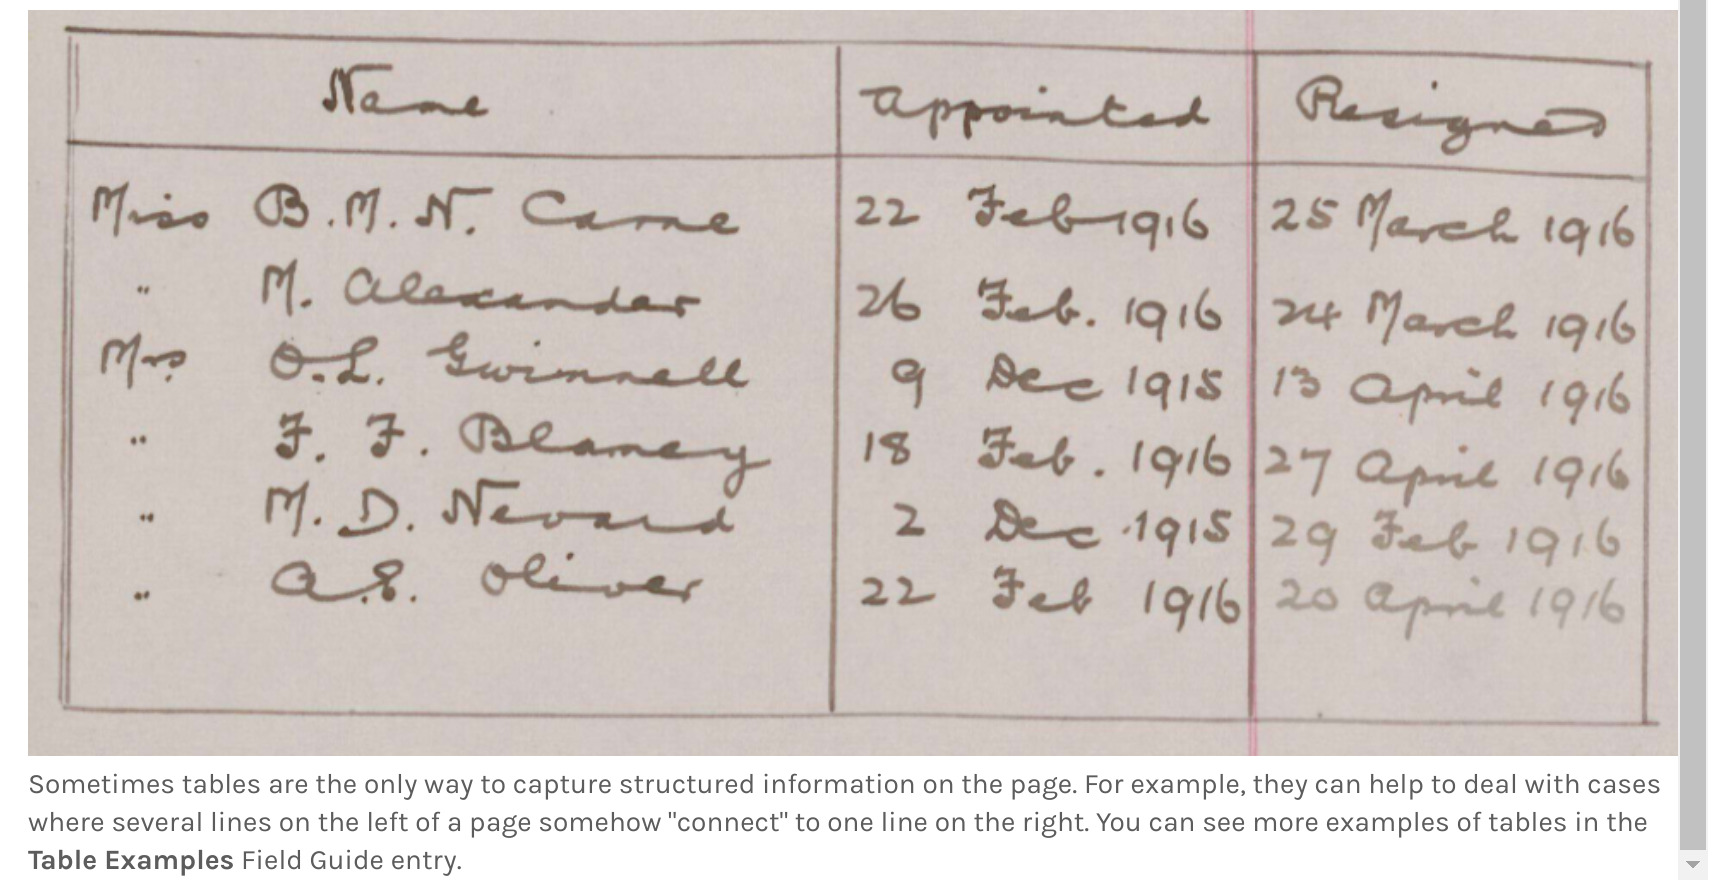 Name Appointed Resigned
Miss B. M. N. Carne 22 Feb 1916 25 March 1916
" M. Alexander 26 Feb. 1916 24 March 1916
Mrs O. L. Gwinnell 9 Dec 1915 13 April 1916
" F. F. Blamey 18 Feb. 1916 27 April 1916
" M. D. Nevard 2 Dec 1915 29 Feb 1916
" A. E. Oliver 22 Feb 1916 20 April 1916
Sometimes tables are the only way to capture structured information on the page. For example, they can help to deal with cases
where several lines on the left of a page somehow "connect" to one line on the right. You can see more examples of tables in the
Table Examples Field Guide entry.